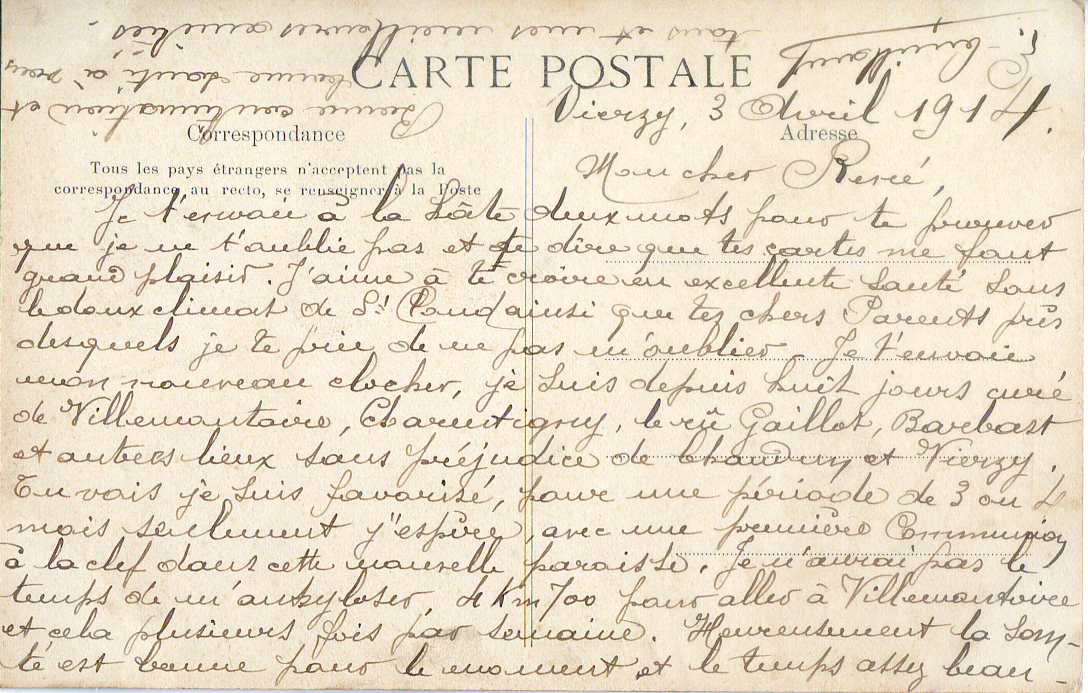 CARTE POSTALE
Correspondance
Adresse
Tous les pays étrangers n'acceptent pas la
correspondance au recto, se renseigner à la Poste
Vierzy, 3 Avril 1914.
Mon cher René,
Je t'envoie à la hâte deux mots pour te prouver
que je ne t'oublie pas et te dire que tes cartes me font
grand plaisir. J'aime à te croire en excellente santé sous
le doux climat de St Cloud ainsi que tes chers Parents près
desquels je te prie de ne pas m'oublier. Je t'envoie
mon nouveau clocher, je suis depuis huit jours curé
de Villemontoire, Charentigny, le rû Gaillot, Barbast
et autres lieux sans préjudice de Chaudun et Vierzy.
Tu vois je suis favorisé, pour une période de 3 ou 4
mois seulement j'espère, avec une première Communion
à la clef dans cette nouvelle paroisse. Je n'aurai pas le
temps de m'ankyloser, 4 Km 700 pour aller à Villemontoire
et cela plusieurs fois par semaine. Heureusement la san-
té est bonne pour le moment et le temps assez beau -
Bonne continuation et
bonne santé à vous
tous et mes meilleures amitiés.